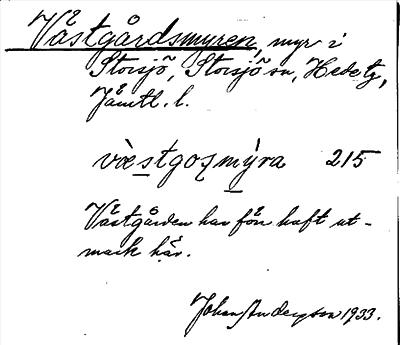 Västgårdsmyren, myr i
Storsjö, Storsjö sn, Hede tg,
Jämtl. l.
væstgoςmỳra 215
Västgården har förr haft ut-
mark här.
Johan Anderson 1933.